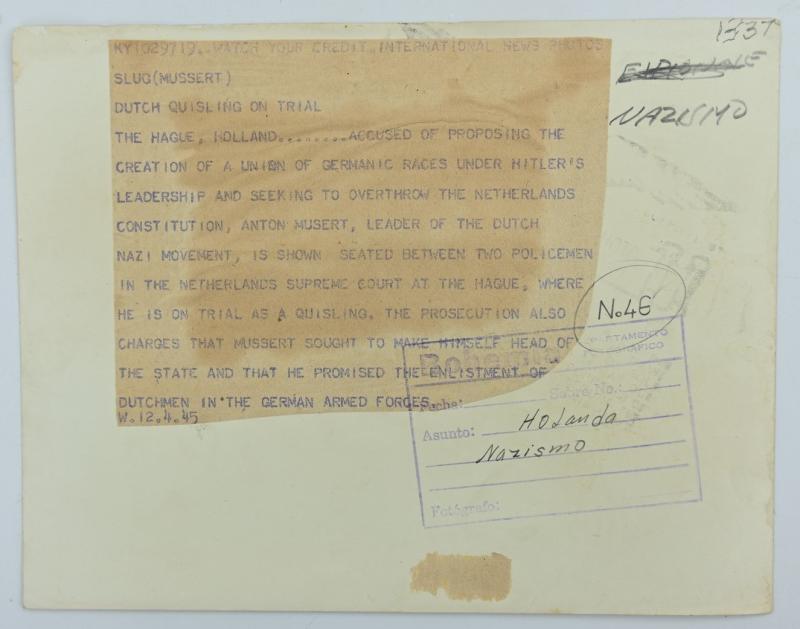 1337
KY1029719..WATCH YOUR CREDIT..INTERNATIONAL NEWS PHOTOS
SLUG(MUSSERT)
DUTCH QUISLING ON TRIAL
THE HAGUE, HOLLAND........ACCUSED OF PROPOSING THE
CREATION OF A UNION OF GERMANIC RACES UNDER HITLER'S
LEADERSHIP AND SEEKING TO OVERTHROW THE NETHERLANDS
CONSTITUTION, ANTON MUSERT, LEADER OF THE DUTCH
NAZI MOVEMENT, IS SHOWN SEATED BETWEEN TWO POLICEMEN
IN THE NETHERLANDS SUPREME COURT AT THE HAGUE, WHERE
HE IS ON TRIAL AS A QUISLING. THE PROSECUTION ALSO
CHARGES THAT MUSSERT SOUGHT TO MAKE HIMSELF HEAD OF
THE STATE AND THAT HE PROMISED THE ENLISTMENT OF
DUTCHMEN IN THE GERMAN ARMED FORCES.
W.12.4.45
NAZISMO
No.46
Bohemia
Sobre No.:
Asunto: HOLanda
Nazismo
Fotógrafo: